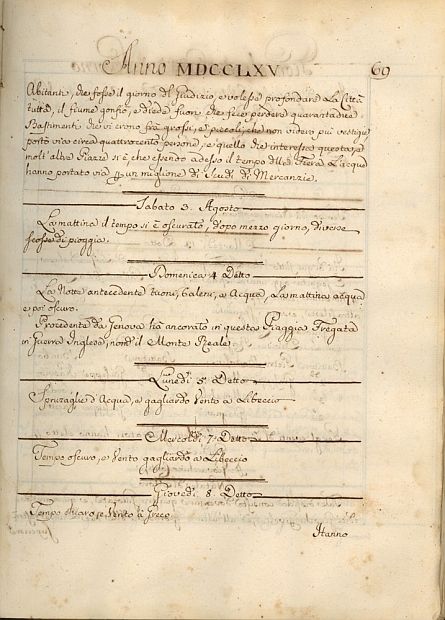 Anno MDCCLXV
69
Abitanti, che fosse il giorno del Giudizio, e volesse profondare La Città
tutta, il fiume gonfiò, e diede fuori che fece perdere quarantadue
Bastimenti che vi erono frà grossi, e piccoli, che non videro più vestigie
porto via circa quattrocento persone, e quello che interessa questa, e
molt'altre Piazze si è che essendo adesso il tempo della Fiera L'acqua
hanno portato via un miglione di Scudi di Mercanzie.
Sabato 3. Agosto
La mattina il tempo si è oscurato, dopo mezzo giorno, diverse
scosse di pioggia.
Domenica 4 Detto
La Notte antecedente tuoni, baleni, e Acqua, La mattina acqua
e poi oscuro.
Procedente da Genova hà ancorato in questa Piaggia Fregata
in Guerra Inglese, nom: il Monte Reale
Lunedì 5 Detto
Spruzaglie d'Acqua, e gagliardo Vento a Libeccio
Mercoldì 7. Detto
Tempo oscuro, e Vento gagliardo a Libeccio
Giovedì 8. Detto
Tempo chiaro, e Vento à Greco
Hanno